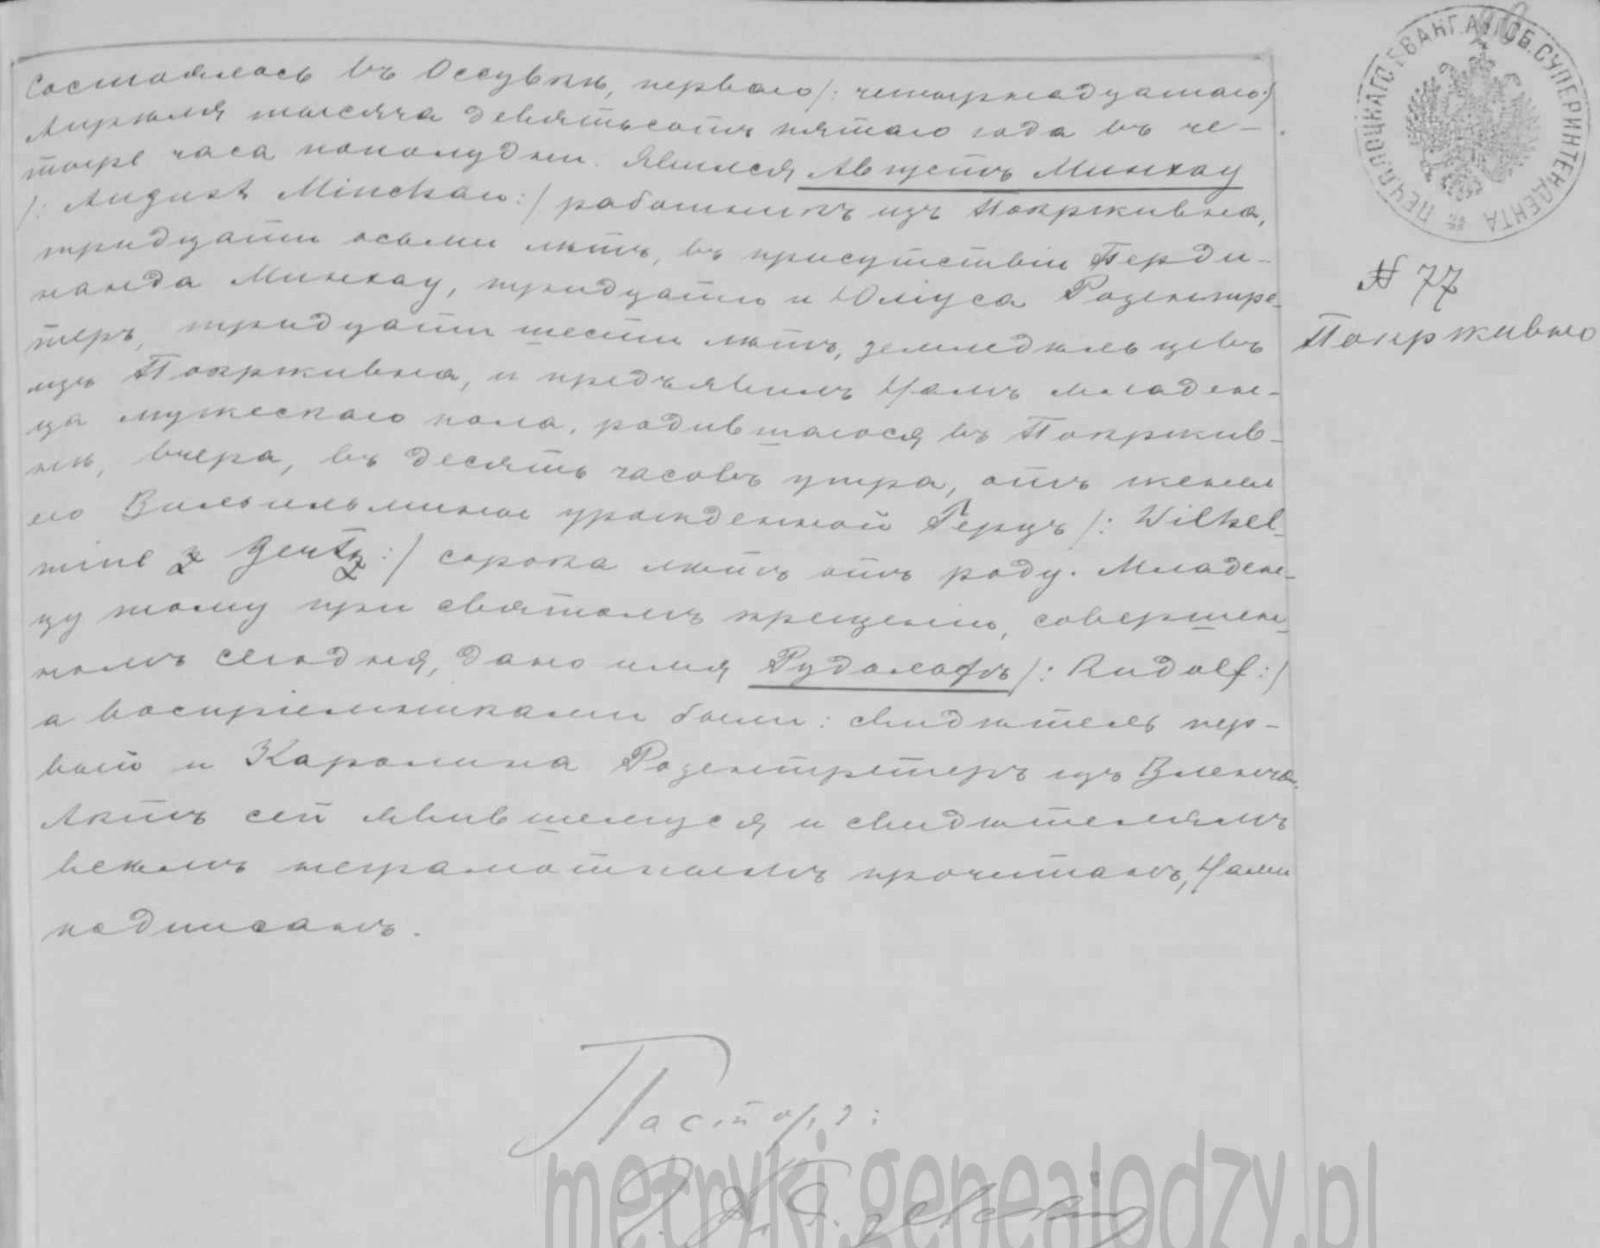 Состоялось въ Оссувкѣ, перваго /: четырнадцатаго :/
Апрѣля тысяча девятьсотъ пятаго года въ че-
тыре часа пополудни. Явился Августъ Минхау
/: August Minchau :/ работникъ изъ Покрживна,
тридцати осьми лѣтъ, въ присутствіи Ферди-
нанда Минхау, тридцати и Юліуса Розентре-
теръ, тридцати шести лѣтъ, земледѣльцевъ
изъ Покрживна, и предъявилъ Намъ младен-
ца мужескаго пола, родившагося въ Покржив-
нѣ, вчера, въ десять часовъ утра, отъ жены
его Вильгельмины урожденной Герцъ /: Wilhel-
mine Gertz :/ сорока лѣтъ отъ роду. Младен-
цу тому при святомъ крещеніи, совершен-
номъ сегодня, дано имя Рудольфъ /: Rudolf :/
а воспріемниками были: свидѣтель пер-
вый и Каролина Розентретеръ изъ
Актъ сей явившемуся и свидѣтелямъ
всѣмъ неграмотнымъ прочитанъ, Нами
подписанъ.
Пасторъ:
ПЕЧ. ПЛОЦКАГО ЕВАНГ. АУГСБ. СУПЕРИНТЕНДЕНТА
№ 77
Покрживно
metryki.genealodzy.pl